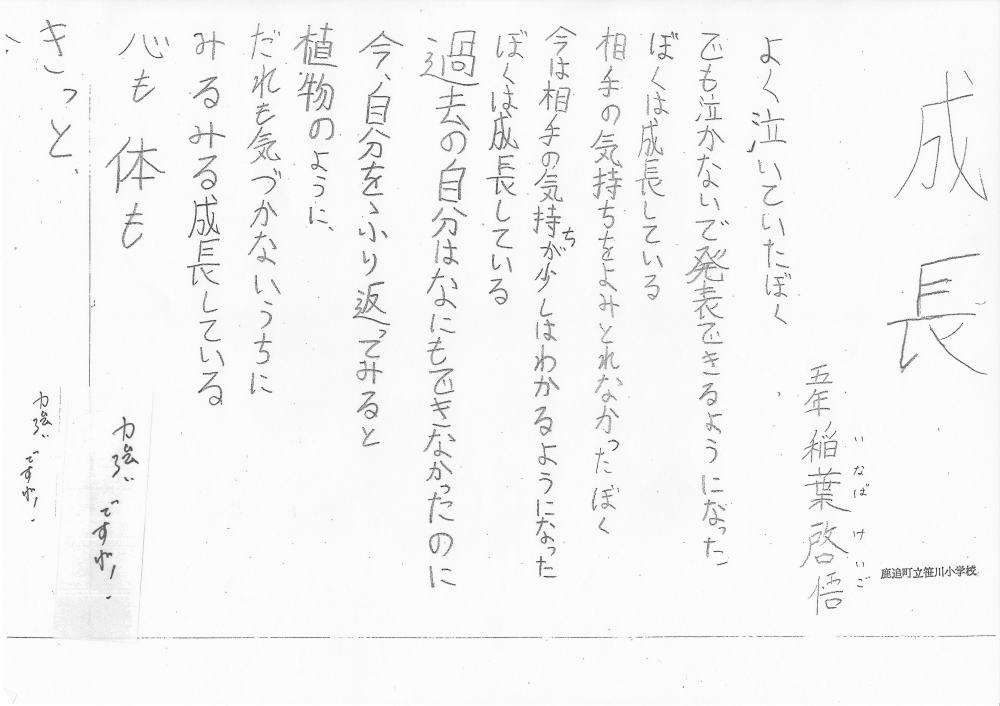 成長
鹿追町立笹川小学校
五年 稲葉啓悟
いなば けいご
よく泣いていたぼく
でも泣かないで発表できるようになった
ぼくは成長している
相手の気持ちをよみとれなかったぼく
今は相手の気持ちが少しはわかるようになった
ぼくは成長している
過去の自分はなにもできなかったのに
今、自分をふり返ってみると
植物のように、
だれも気づかないうちに
みるみる成長している
心も 体も
きっと、
力強いですね!
力強いですね!